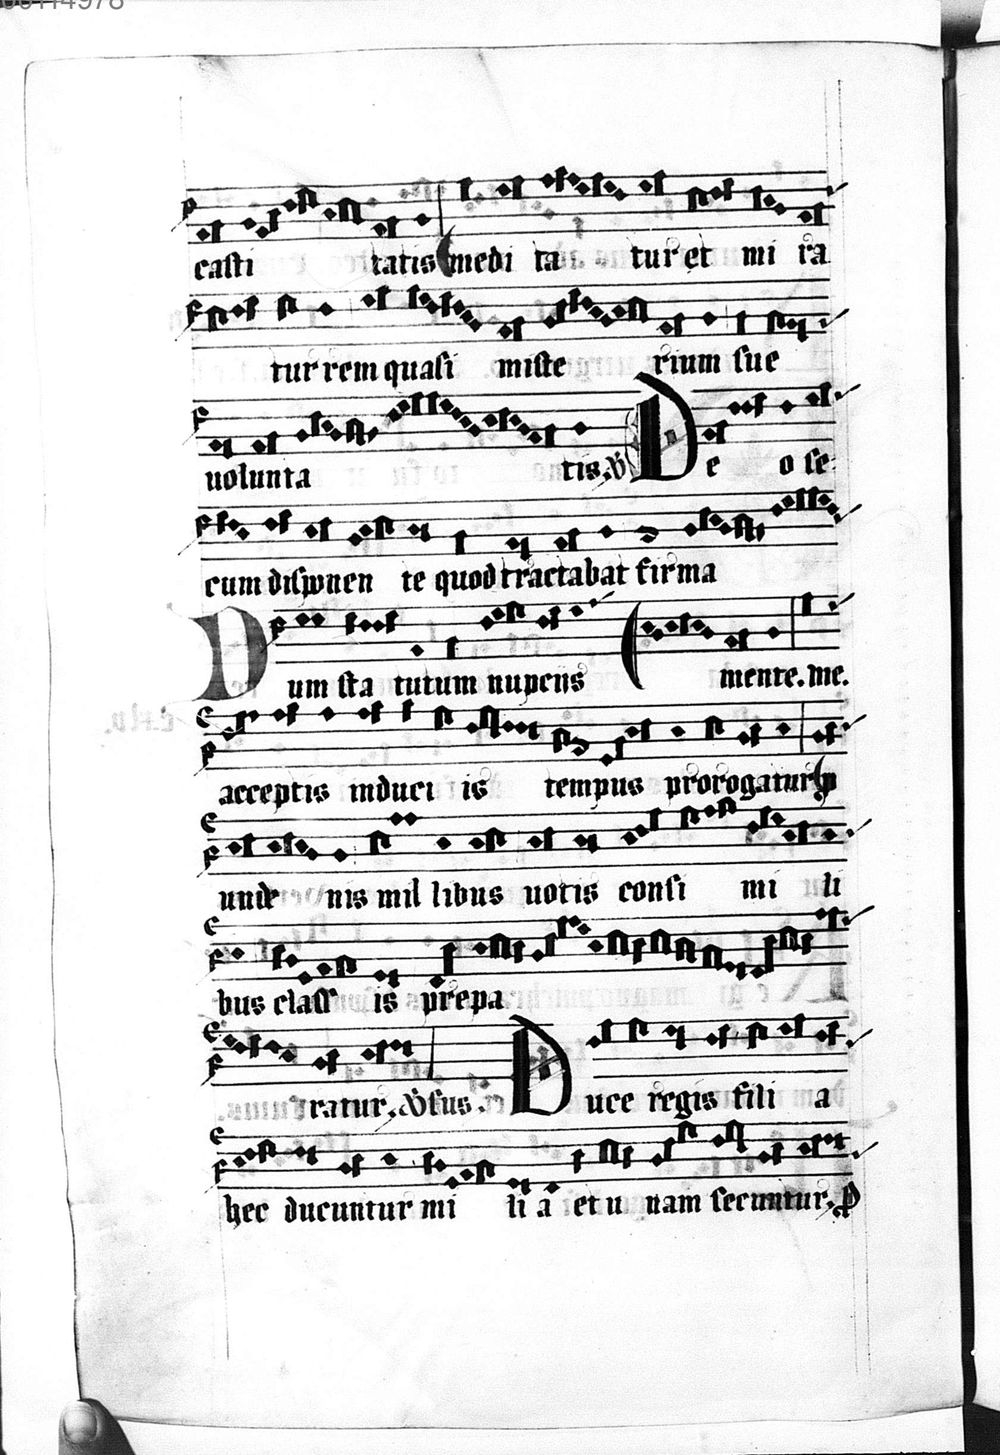 casti tatis medi ta tur et mi ra
tur rem quasi miste rium sue
uolunta tis. V De o se
cum disponen te quod tractabat firma
Dum sta tutum nupciis mente. me.
acceptis induci is tempus prorogatur
unde nis mil libus uotis consi mi li
bus class is prepa
ratur. Vsus. Duce regis fili a
hec ducuntur mi li a et u nam secuntur. P